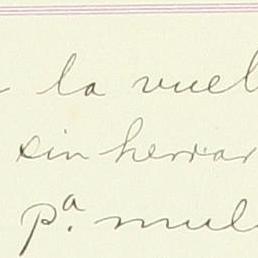 la vuel
sin herrar
pª. mul